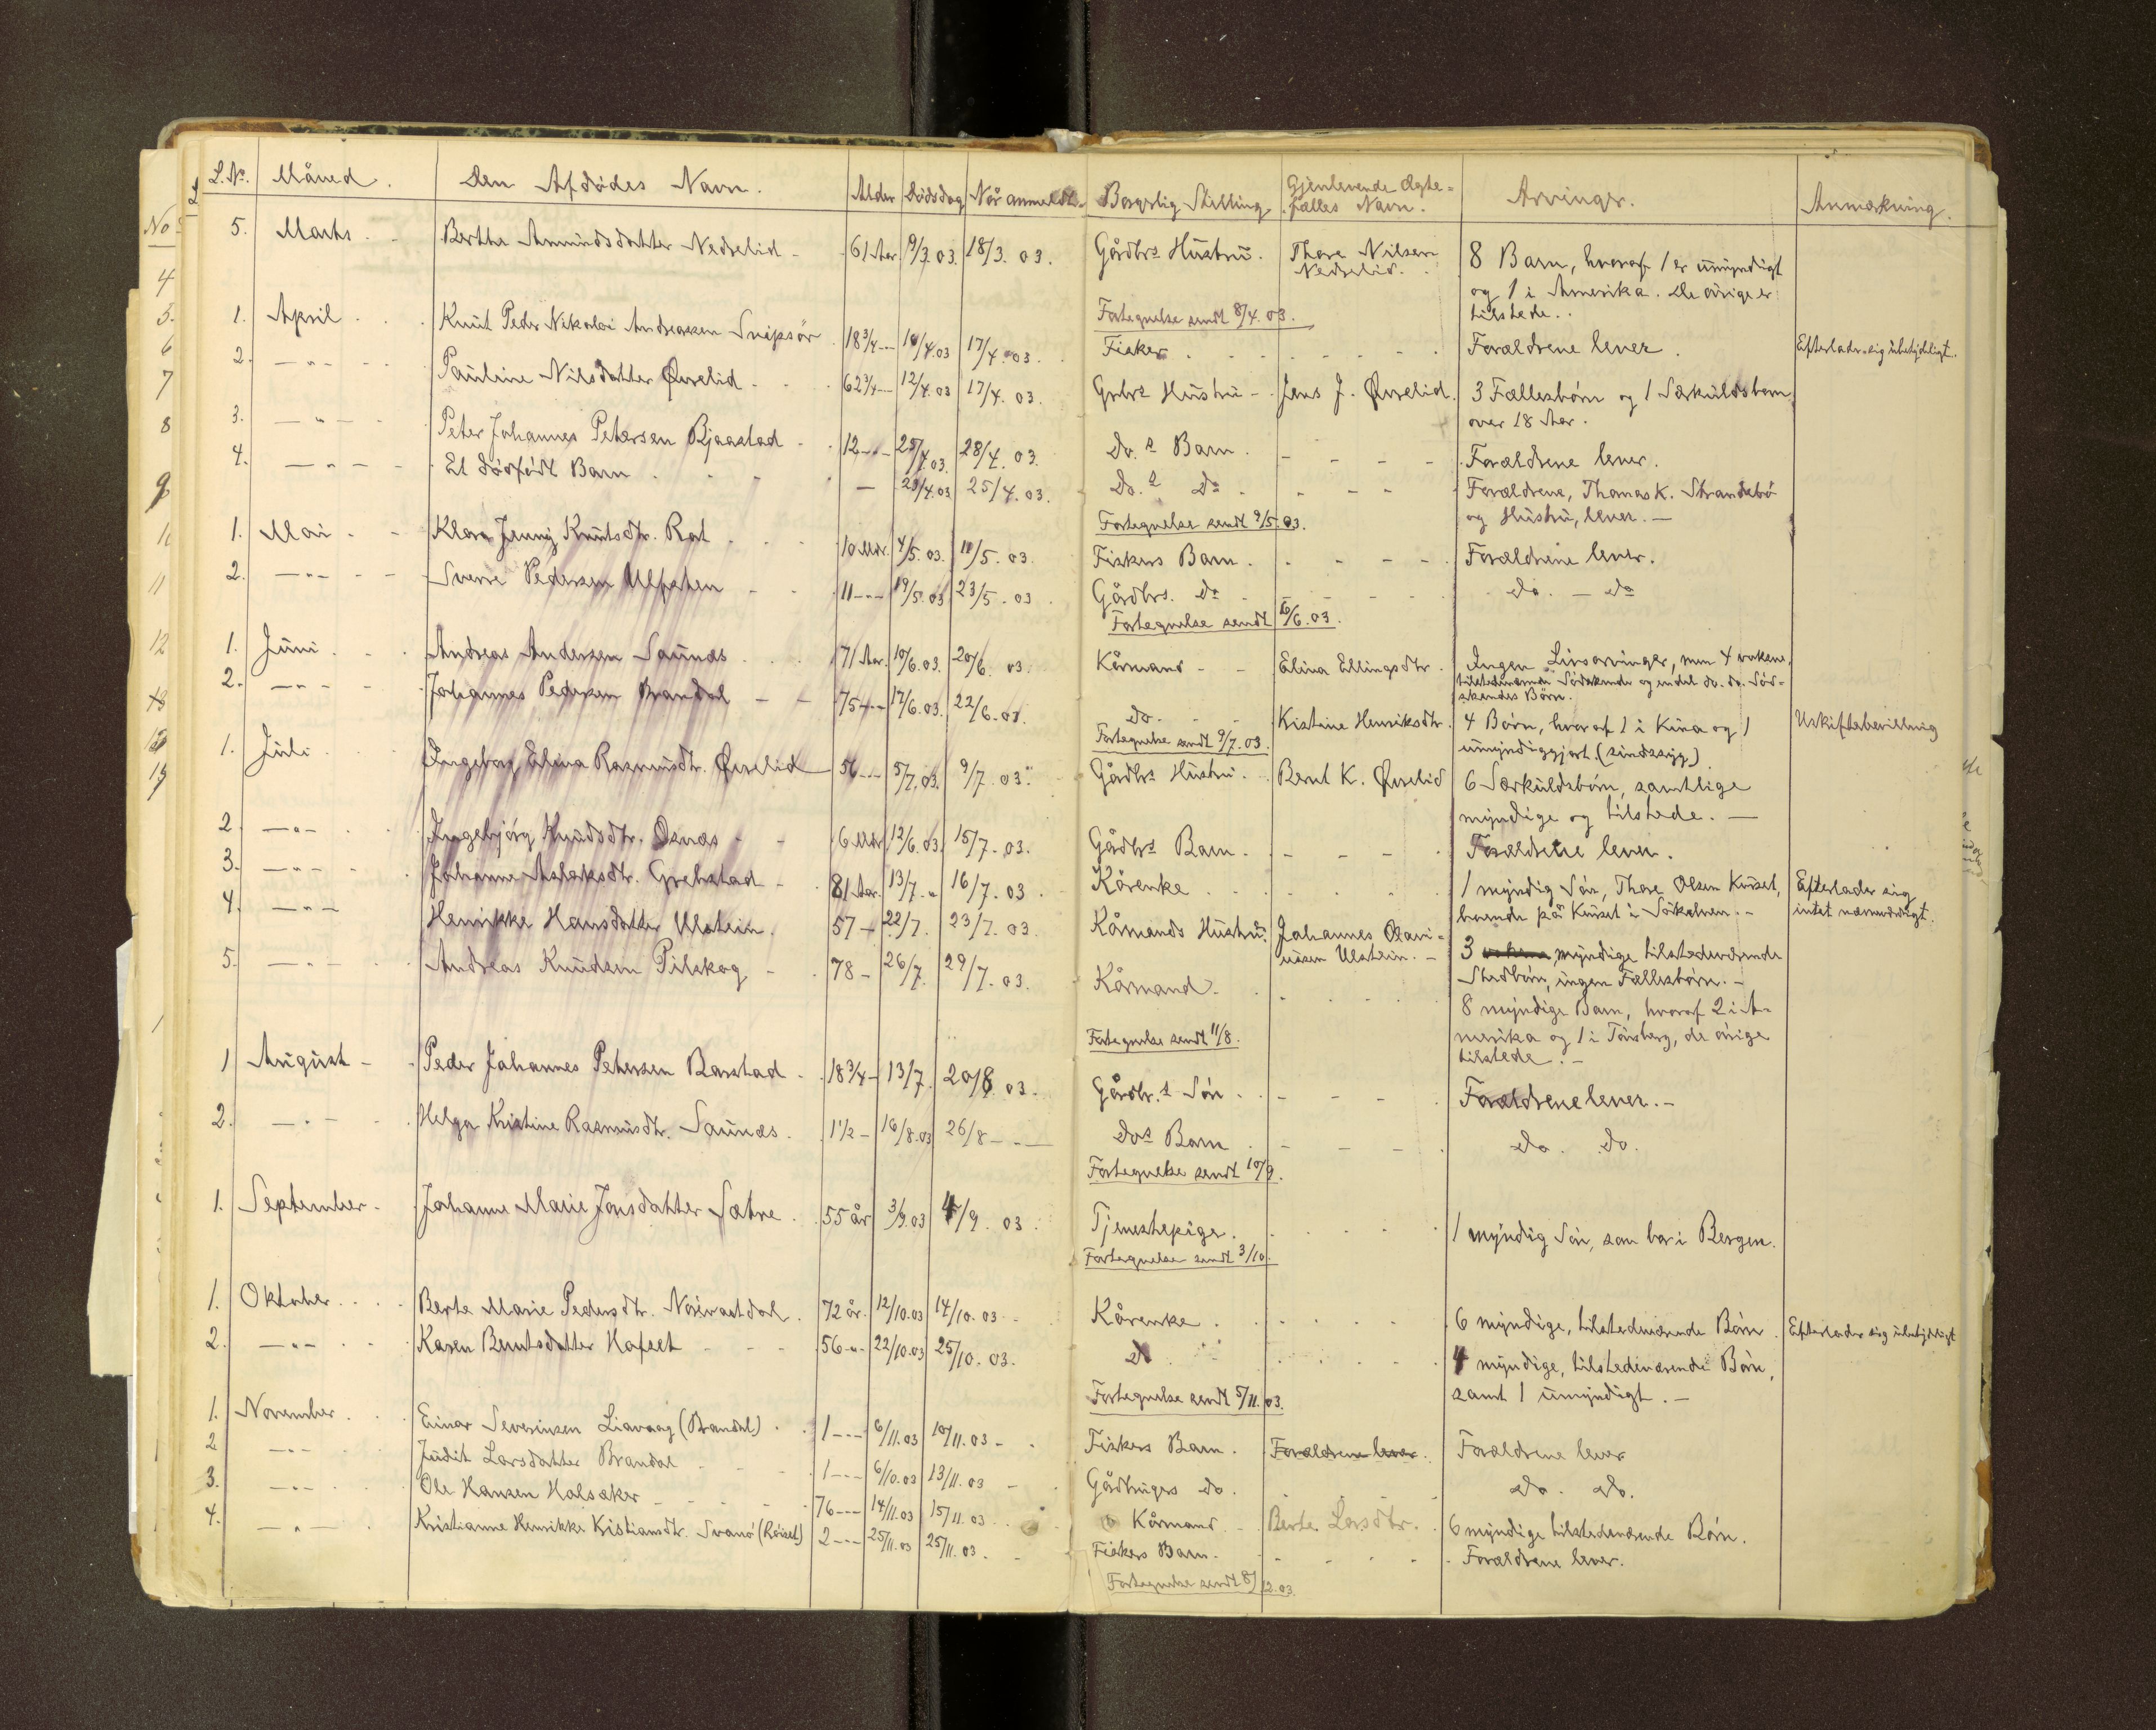 L.No. Måned. Den Afdødes Navn. Alder Dødsdag Når anmeldt. Borgerlig Stilling Gjenlevende Ægte=fælles Navn. Arvinger. Anmærkning.
5. Marts Berthe Amundsdatter Nedrelid 61 Aar 9/3.03. 18/3.03. Gårdbrs Hustru. Thore Nilsen Nedrelid. 8 Barn, hvoraf 1 er umyndigt
og 1 i Amerika. De øvrige er
tilstede.
Fortegnelse sendt 8/4.03.
1. April Knut Peder Nikolai Andreassen Snipsør 18 3/4 -"- 10/4.03 17/4.03. Fisker Forældrene lever. Efterlader sig ubetydeligt.
2. -"- Pauline Nilsdatter Øvrelid 62 3/4 -"- 12/4.03 17/4.03. Grbrs Hustru Jens J. Øvrelid. 3 Fællesbørn og 1 Særkuldsbarn
over 18 Aar.
3. -"- Peter Johannes Petersen Bjaastad 12 -"- 25/4.03. 28/4.03. Do.s Barn. Forældrene lever.
4. -"- Et dødfødt Barn — 23/4.03 25/4.03. Do.s Do Forældrene, Thomas K. Strandabø
og Hustru, lever.—
Fortegnelse sendt 9/5.03.
1. Mai Klara Jenny Knutsdtr. Rot 10 Mdr. 4/5.03. 11/5.03. Fiskers Barn. Forældrene lever.
2. -"- Sverre Pedersen Ulfsten 11 -"- 19/5.03 23/5.03. Gårdbrs. Do Do. — Do
Fortegnelse sendt 10/6.03.
1. Juni Andreas Andersen Saunæs 71 Aar. 10/6.03. 20/6.03 Kårmand Elina Ellingsdtr. Ingen Livsarvinger, men 4 voksne,
tilstedeværende Sødskende og endel do. do. Sød=
skendes Børn.
2. -"- Johannes Pedersen Brandal 75 -"- 17/6.03. 22/6.03. do. Kistine Henriksdtr. 4 Børn, hvoraf 1 i Kina og 1 Uskiftebevilling
umyndiggjort (sindssyg)
Fortegnelse sendt 9/7.03.
1. Juli Ingeborg Elina Rasmusdtr. Øvrelid 56 -"- 5/7.03. 9/7.03. Gårdbrs Hustru. Bernt K. Øvrelid 6 Særkuldsbørn, samtlige
myndige og tilstede.—
2. -"- Ingebjørg Knudsdtr. Osnæs 6 Mdr 12/6.03. 15/7.03. Gårdbrs Barn. Forældrene lever.
3. -"- Johanne Aslaksdtr. Grebstad 81 Aar. 13/7.-" 16/7.03. Kårenke 1 myndig Søn, Thore Olsen Kurset, Efterlader sig
boende på Kurset i Søkelven.- intet nævneværdigt.
4. -"- Henrikke Hansdatter Ulstein. 57 - 22/7. 23/7.03. Kårmands Hustru. Johannes Olavi=
usen Ulstein.- 3 myndige tilstedeværende
Stedbørn, ingen Fællesbørn.-
5. -"- Andreas Knudsen Pilskog 78 - 26/7. 29/7.03. Kårmand. 8 myndige Barn, hvoraf 2 i A-
merika og 1 i Tønsberg, de øvrige
tilstede.-
Fortegnelse sendt 11/8.
1 August Peder Johannes Petersen Barstad 18 3/4 - 13/7. 20/8.03. Gårdbr.s Søn. Forældrene lever.-
2. -"- Helga Kristine Rasmusdtr. Saunæs. 1 1/2 - 16/8.03 26/8 -"- Dos Barn Do. Do.
Fortegnelse sendt 10/9.
1. September. Johanne Marie Jonsdatter Sætre. 55 år 3/9.03 4/9.03. Tjenestepige. 1 myndig Søn, som bor i Bergen.
Fortegnelse sendt 3/10.
1. Oktober Berte Marie Pedersdtr. 72 år. 12/10.03 14/10.03 Kårenke. 6 myndige, tilstedeværende Børn. Efterlader sig ubetydeligt
2. -"- Karen Berntsdatter Hafset 56 -"- 22/10.03 25/10.03. do 4 myndige, tilstedeværende Børn,
samt 1 umyndigt.-
Fortegnelse sendt 5/11.03.
1. November. Einar Severinsen Liavaag (Brandal) 1 -"- 6/11.03 10/11.03 Fiskers Barn. Forældrene lever. Forældrene lever
2 -"- Judit Larsdatter Brandal 1 -"- 6/10.03 13/11.03 Gårdbrugers do. Do. Do.
3. -"- Ole Hansen Holsaker 76 -"- 14/11.03 15/11.03 Kårmand Berte Larsdtr. 6 myndige tilstedeværende Børn.
4. -"- Kristianne Henrikke Kistiansdtr. Svanø (Røiset) 2 -"- 25/11.03 25/11.03. Fiskers Barn. Forældrene lever.
Fortegnelse sendt 8/12.03.